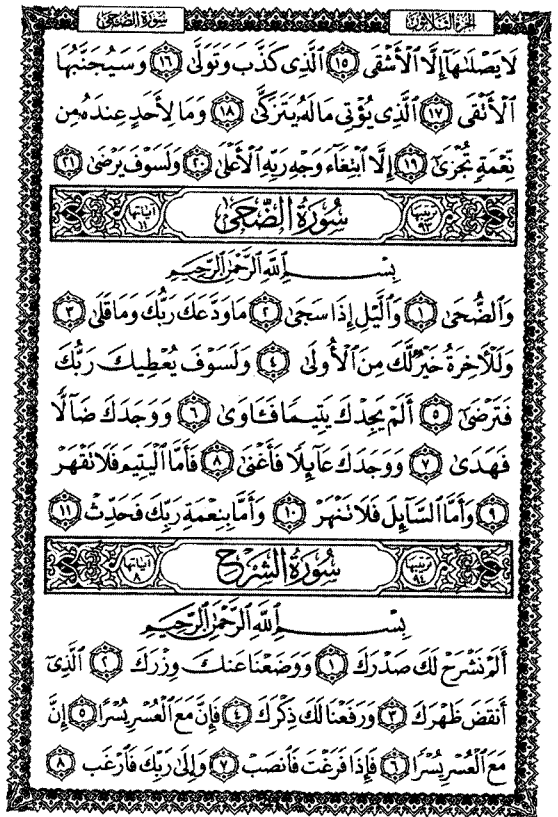 الجزء الثلاثون
سورة الضحى
لَا يَصْلَىٰهَآ إِلَّا ٱلْأَشْقَى ١٥ ٱلَّذِى كَذَّبَ وَتَوَلَّىٰ ١٦ وَسَيُجَنَّبُهَا
ٱلْأَتْقَى ١٧ ٱلَّذِى يُؤْتِى مَالَهُۥ يَتَزَكَّىٰ ١٨ وَمَا لِأَحَدٍ عِندَهُۥ مِن
نِّعْمَةٍ تُجْزَىٰٓ ١٩ إِلَّا ٱبْتِغَآءَ وَجْهِ رَبِّهِ ٱلْأَعْلَىٰ ٢٠ وَلَسَوْفَ يَرْضَىٰ ٢١
ترتيبها ٩٣ سُورَةُ الضُّحَىٰ آياتها ١١
بِسْمِ ٱللَّهِ ٱلرَّحْمَٰنِ ٱلرَّحِيمِ
وَٱلضُّحَىٰ ١ وَٱلَّيْلِ إِذَا سَجَىٰ ٢ مَا وَدَّعَكَ رَبُّكَ وَمَا قَلَىٰ ٣
وَلَلْأَخِرَةُ خَيْرٌ لَّكَ مِنَ ٱلْأُولَىٰ ٤ وَلَسَوْفَ يُعْطِيكَ رَبُّكَ
فَتَرْضَىٰٓ ٥ أَلَمْ يَجِدْكَ يَتِيمًا فَـَٔاوَىٰ ٦ وَوَجَدَكَ ضَآلًّا
فَهَدَىٰ ٧ وَوَجَدَكَ عَآئِلًا فَأَغْنَىٰ ٨ فَأَمَّا ٱلْيَتِيمَ فَلَا تَقْهَرْ
٩ وَأَمَّا ٱلسَّآئِلَ فَلَا تَنْهَرْ ١٠ وَأَمَّا بِنِعْمَةِ رَبِّكَ فَحَدِّثْ ١١
ترتيبها ٩٤ سُورَةُ الشَّرْحِ آياتها ٨
بِسْمِ ٱللَّهِ ٱلرَّحْمَٰنِ ٱلرَّحِيمِ
أَلَمْ نَشْرَحْ لَكَ صَدْرَكَ ١ وَوَضَعْنَا عَنكَ وِزْرَكَ ٢ ٱلَّذِىٓ
أَنقَضَ ظَهْرَكَ ٣ وَرَفَعْنَا لَكَ ذِكْرَكَ ٤ فَإِنَّ مَعَ ٱلْعُسْرِ يُسْرًا ٥ إِنَّ
مَعَ ٱلْعُسْرِ يُسْرًا ٦ فَإِذَا فَرَغْتَ فَٱنصَبْ ٧ وَإِلَىٰ رَبِّكَ فَٱرْغَب ٨